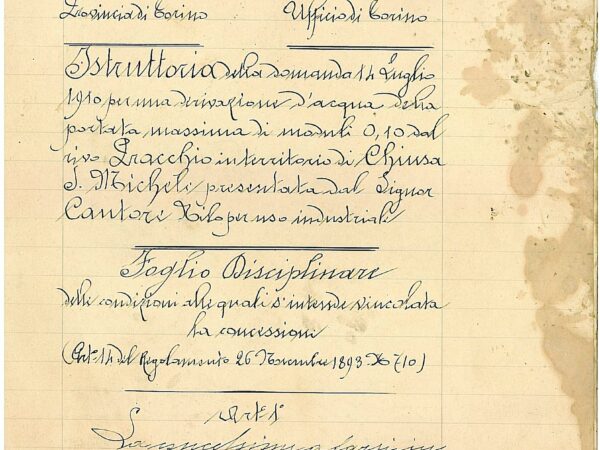 Provincia di Torino Ufficio di Torino
Istruttoria della domanda 14 Luglio
1910 per una derivazione d'acqua della
portata massima di moduli 0,10 dal
rivo Pracchio in territorio di Chiusa
S. Michele presentata dal Signor
Cantore per uso industriale
Foglio Disciplinare
delle condizioni alle quali s'intende vincolata
la concessione
(Art.º 14 del Regolamento 26 Novembre 1893 Nº 710)
Art.º 1º
La concessione